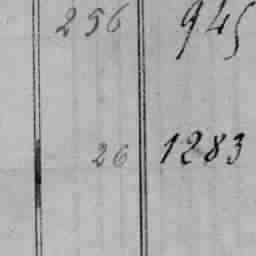 256 945
26 1283